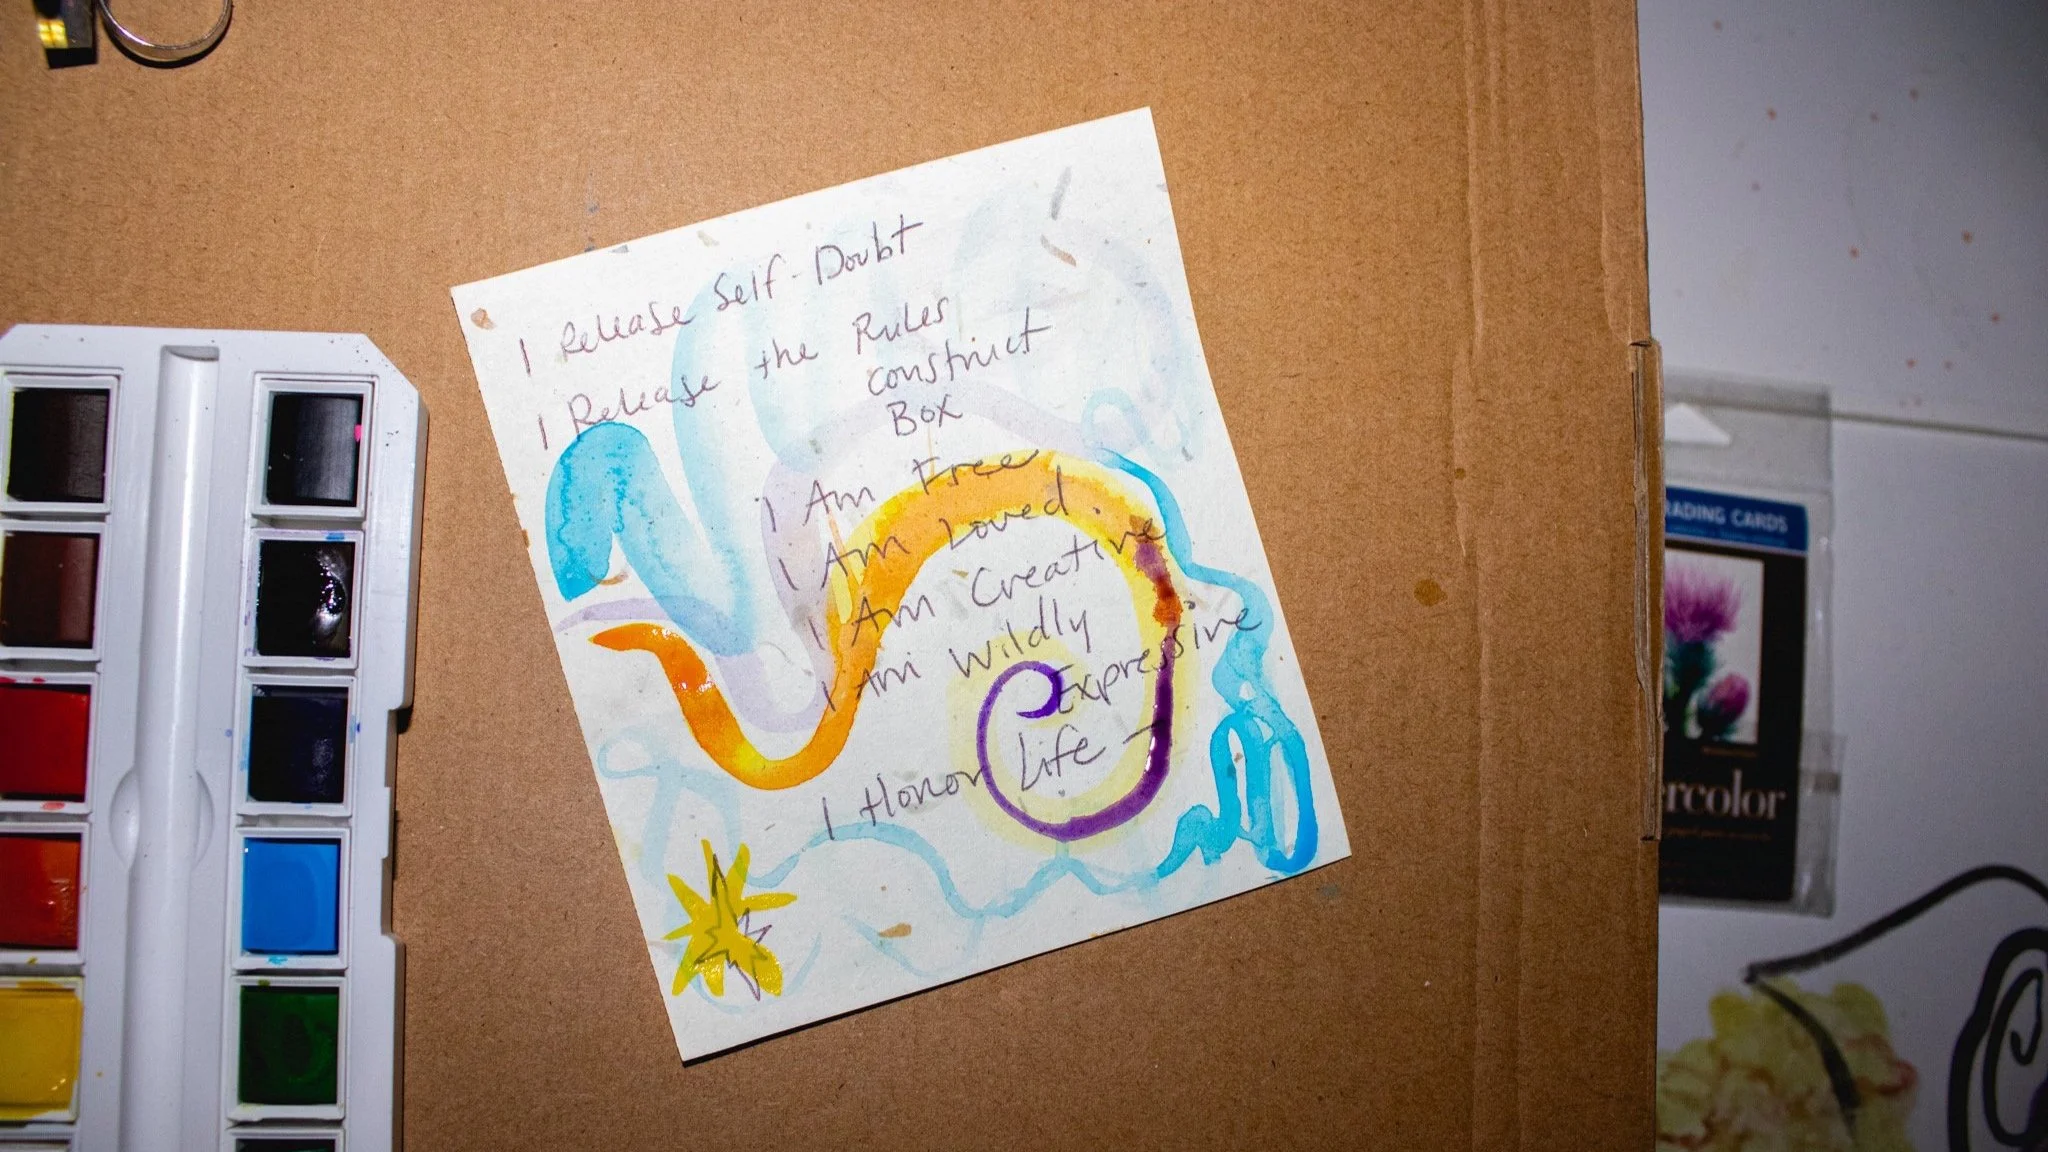 I Release Self-Doubt
I Release the Rules
construct
Box
I Am Free
I Am Loved.
I Am Creative
I Am Wildly
Expressive
I Honor Life –
RADING CARDS
rcolor